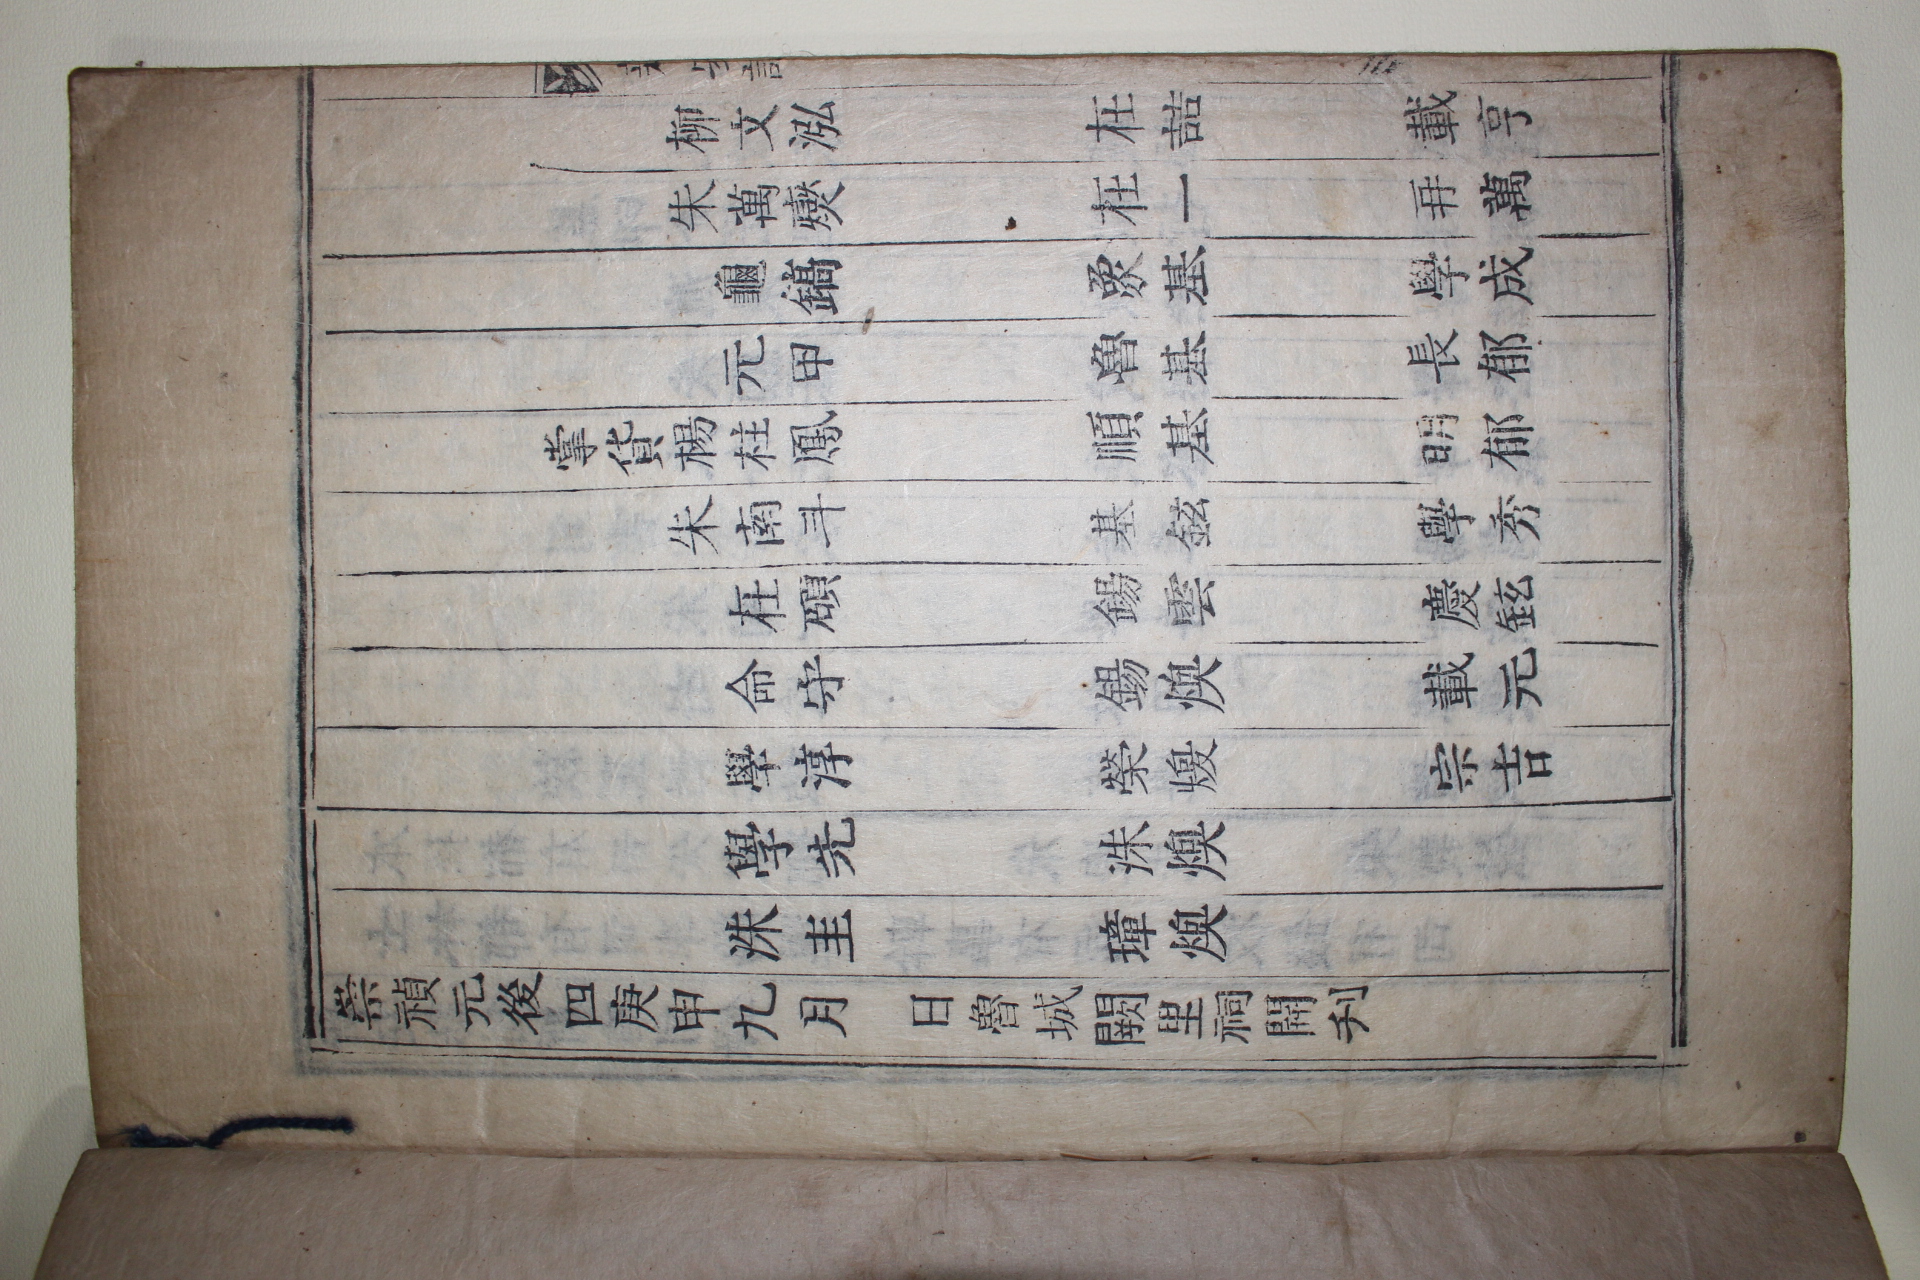 柳文泓 在喆 載亨
朱萬爕 在一 再萬
龜鎬 象基 學成
元甲 魯基 長郁
掌貨楊柱鳳 順基 明郁
朱南斗 基鉉 學秀
在碩 錫雲 慶鉉
命守 錫煥 載元
學淳 榮煖 宗吉
學先 洙煥
洙圭 璋煥
崇禎元後四庚申九月 日魯城闕里祠開刊